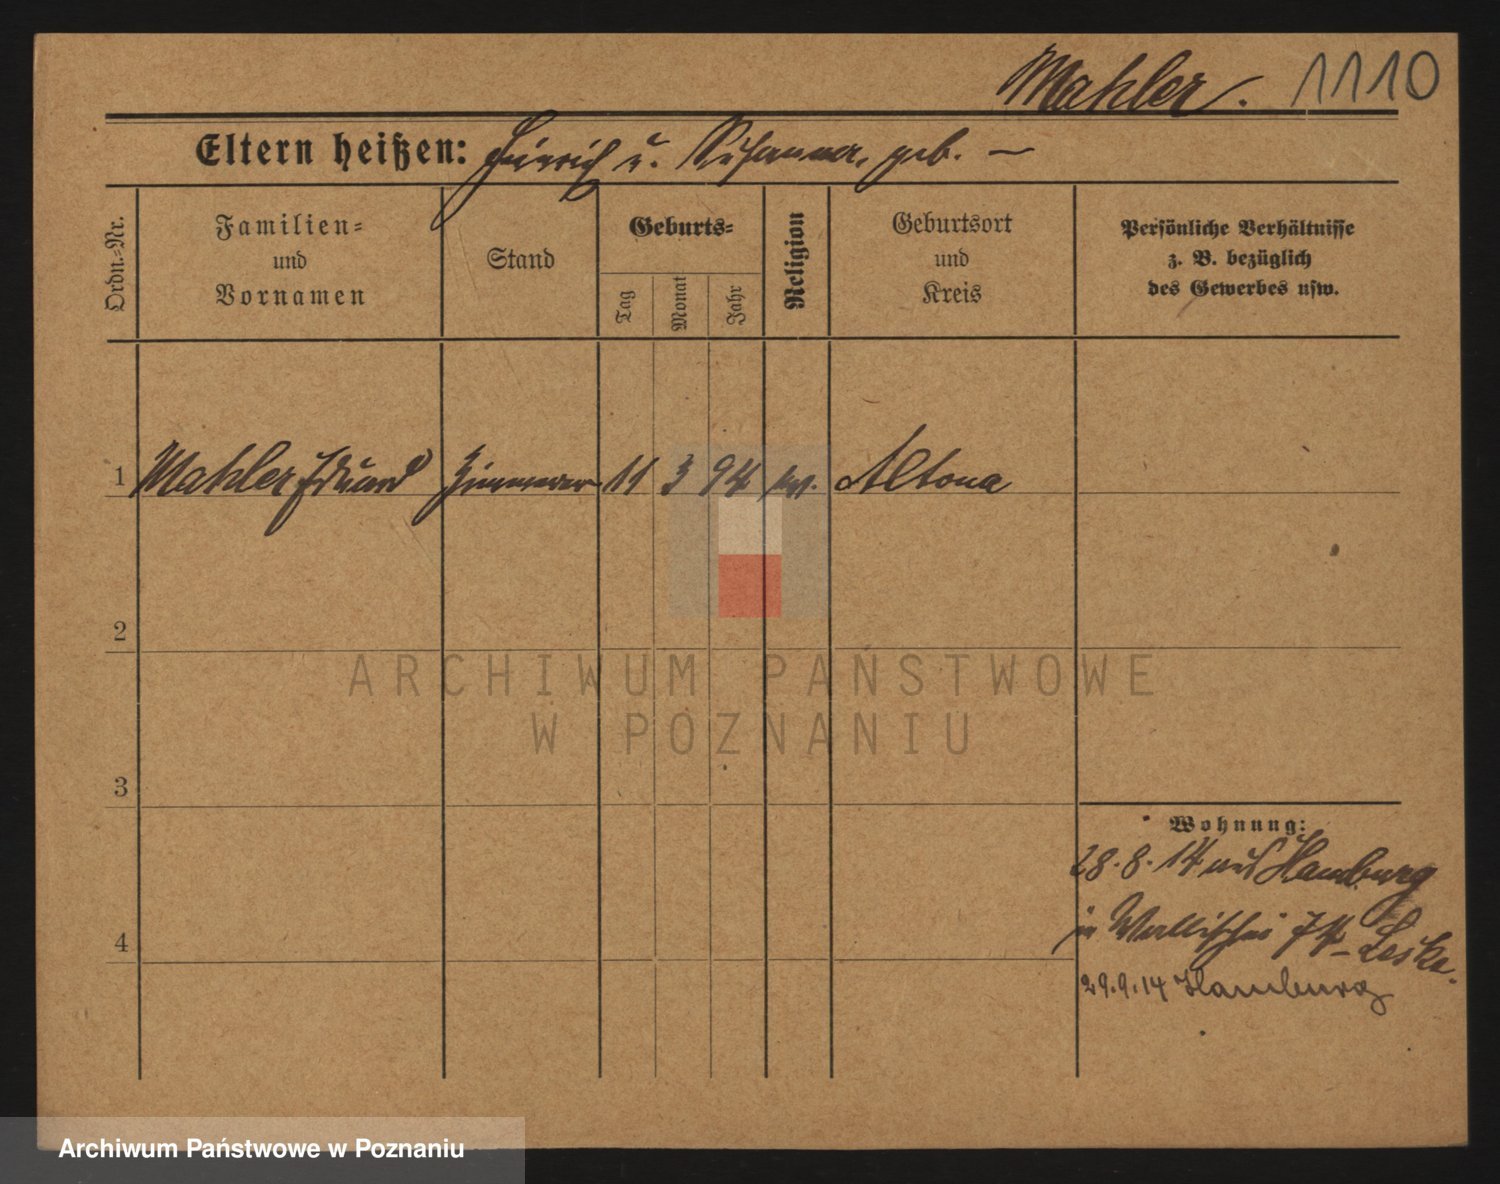 Mahler. 1110
Eltern heißen: Heinrich u. Susanna, geb. —
Ordn.=Nr.
Familien=
und
Vornamen
Stand
Geburts=
Tag
Monat
Jahr
Religion
Geburtsort
und
Kreis
Persönliche Verhältnisse
z. B. bezüglich
des Gewerbes usw.
1 Mahler Eduard Zimmerer 11 3 94 ev. Altona
2
ARCHIWUM PAŃSTWOWE
W POZNANIU
3
Wohnung:
28.8.14 aus Hamburg
4
in Wallischei Leske.
29.9.14 Hamburg
Archiwum Państwowe w Poznaniu